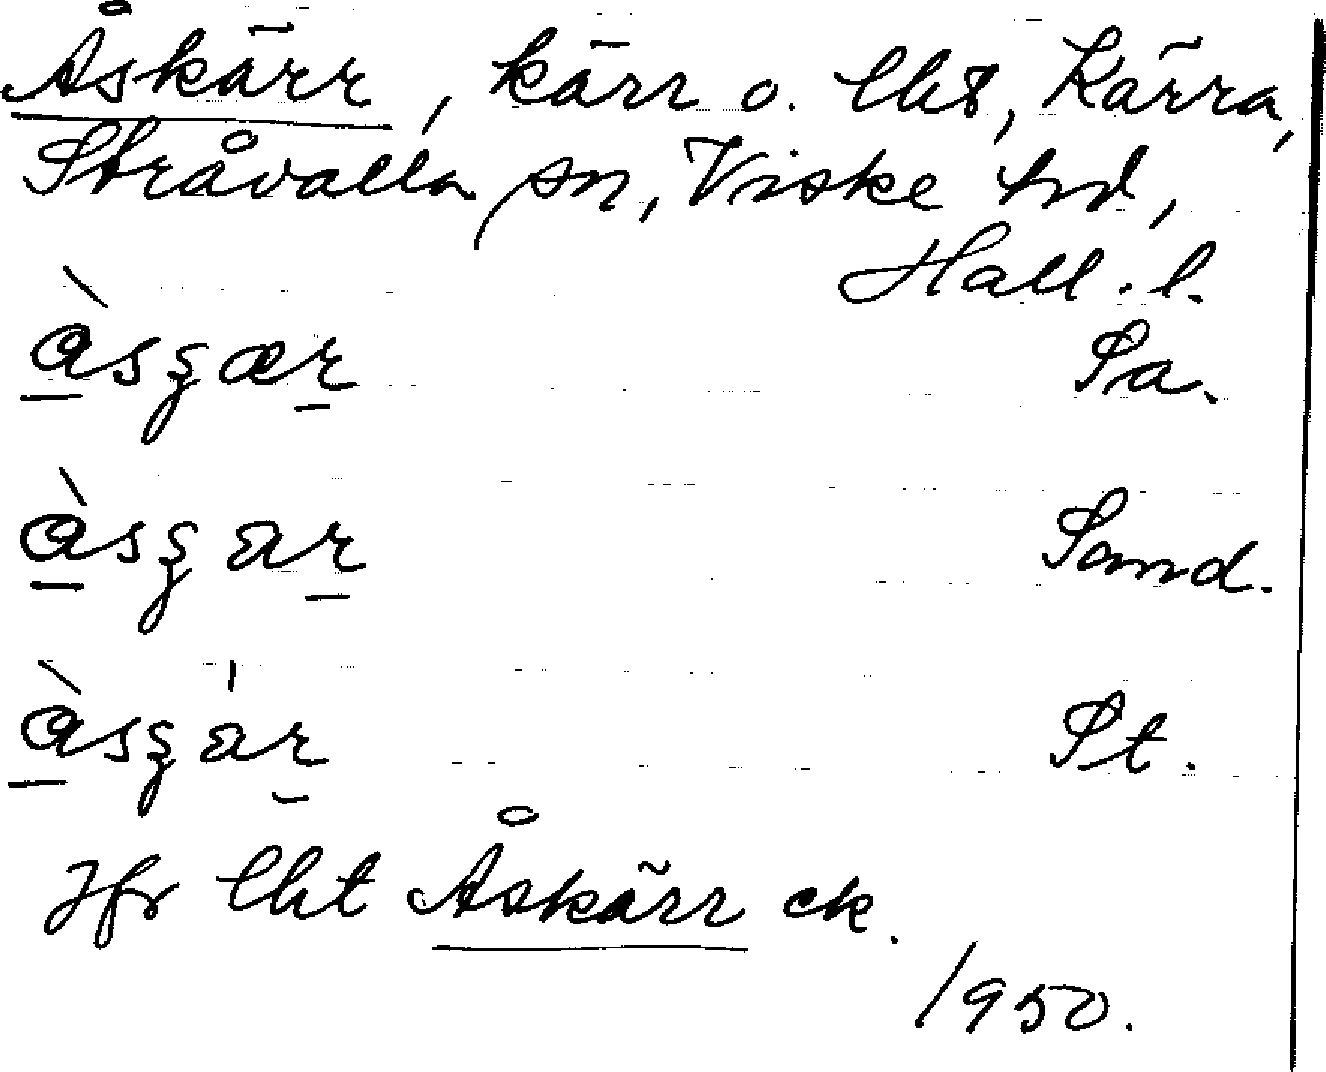 Åskärr, kärr o. lht, Kärra,
Stråvalla sn, Viske hd,
Hall. l.
àsgær Sa.
àsgar Sand.
àsgár St.
Jfr lht Åskärr ek.
1950.